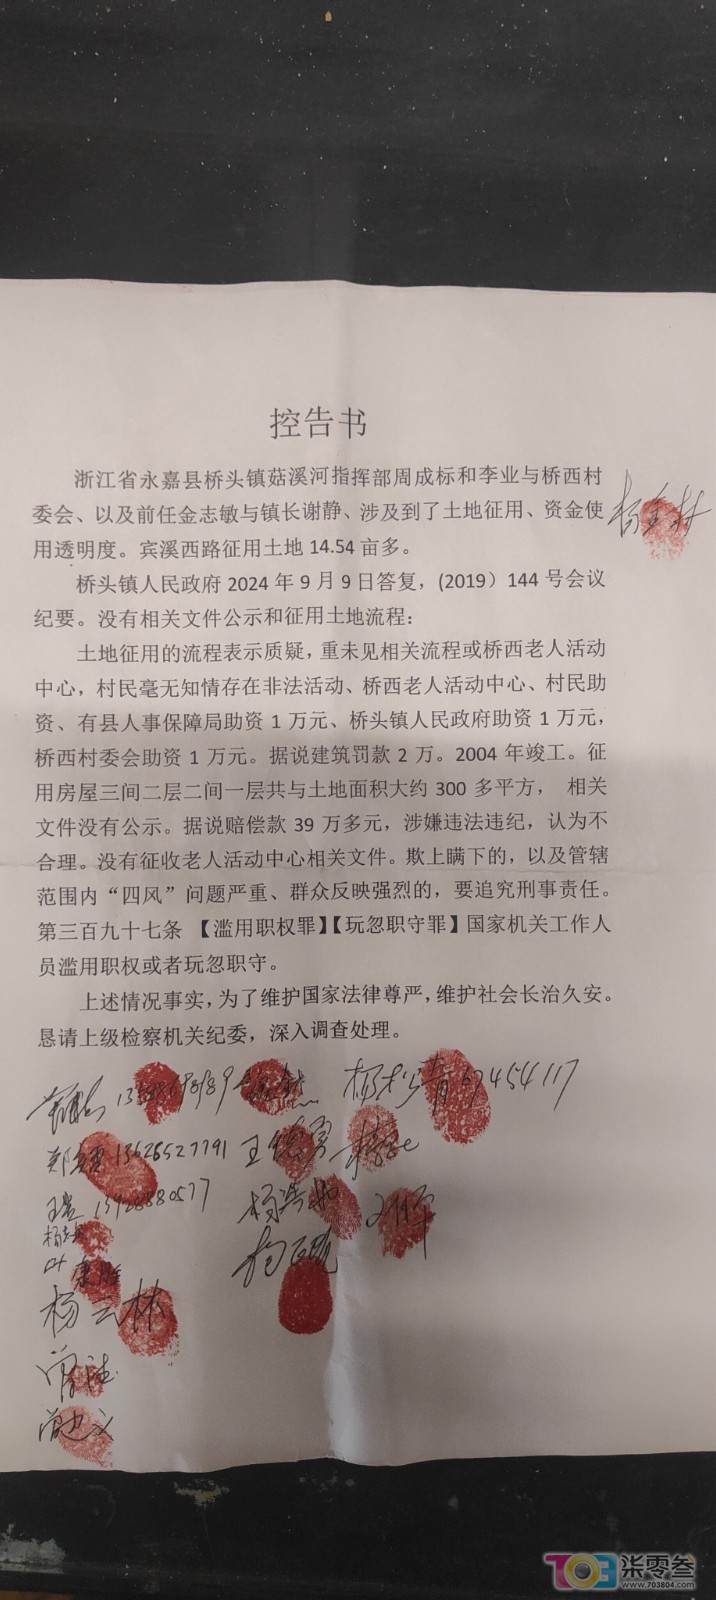 控告书
浙江省永嘉县桥头镇菇溪河指挥部周成标和李业与桥西村
委会、以及前任金志敏与镇长谢静、涉及到了土地征用、资金使
用透明度。宾溪西路征用土地 14.54 亩多。
桥头镇人民政府 2024 年 9 月 9 日答复，(2019）144 号会议
纪要。没有相关文件公示和征用土地流程：
土地征用的流程表示质疑，重未见相关流程或桥西老人活动
中心，村民毫无知情存在非法活动、桥西老人活动中心、村民助
资、有县人事保障局助资 1 万元、桥头镇人民政府助资 1 万元，
桥西村委会助资 1 万元。据说建筑罚款 2 万。2004 年竣工。征
用房屋三间二层二间一层共与土地面积大约 300 多平方， 相关
文件没有公示。据说赔偿款 39 万多元，涉嫌违法违纪，认为不
合理。没有征收老人活动中心相关文件。欺上瞒下的，以及管辖
范围内“四风”问题严重、群众反映强烈的，要追究刑事责任。
第三百九十七条 【滥用职权罪】【玩忽职守罪】国家机关工作人
员滥用职权或者玩忽职守。
上述情况事实，为了维护国家法律尊严，维护社会长治久安。
恳请上级检察机关纪委，深入调查处理。
13626527791
13968880577
杨云林
柒零叁
www.703804.com